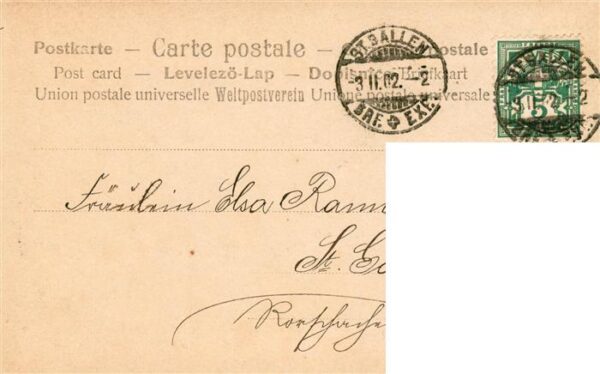 Postkarte — Carte postale — postale
Post card — Levelező-Lap — Dopisnice — Briefkaart
Union postale universelle Weltpostverein Unione postale universale
ST. GALLEN
3 II.02. –2
BRF. EXP.
ST. GALLEN
5
BRF. EX
Fräulein Elsa
St. G
Rorschache